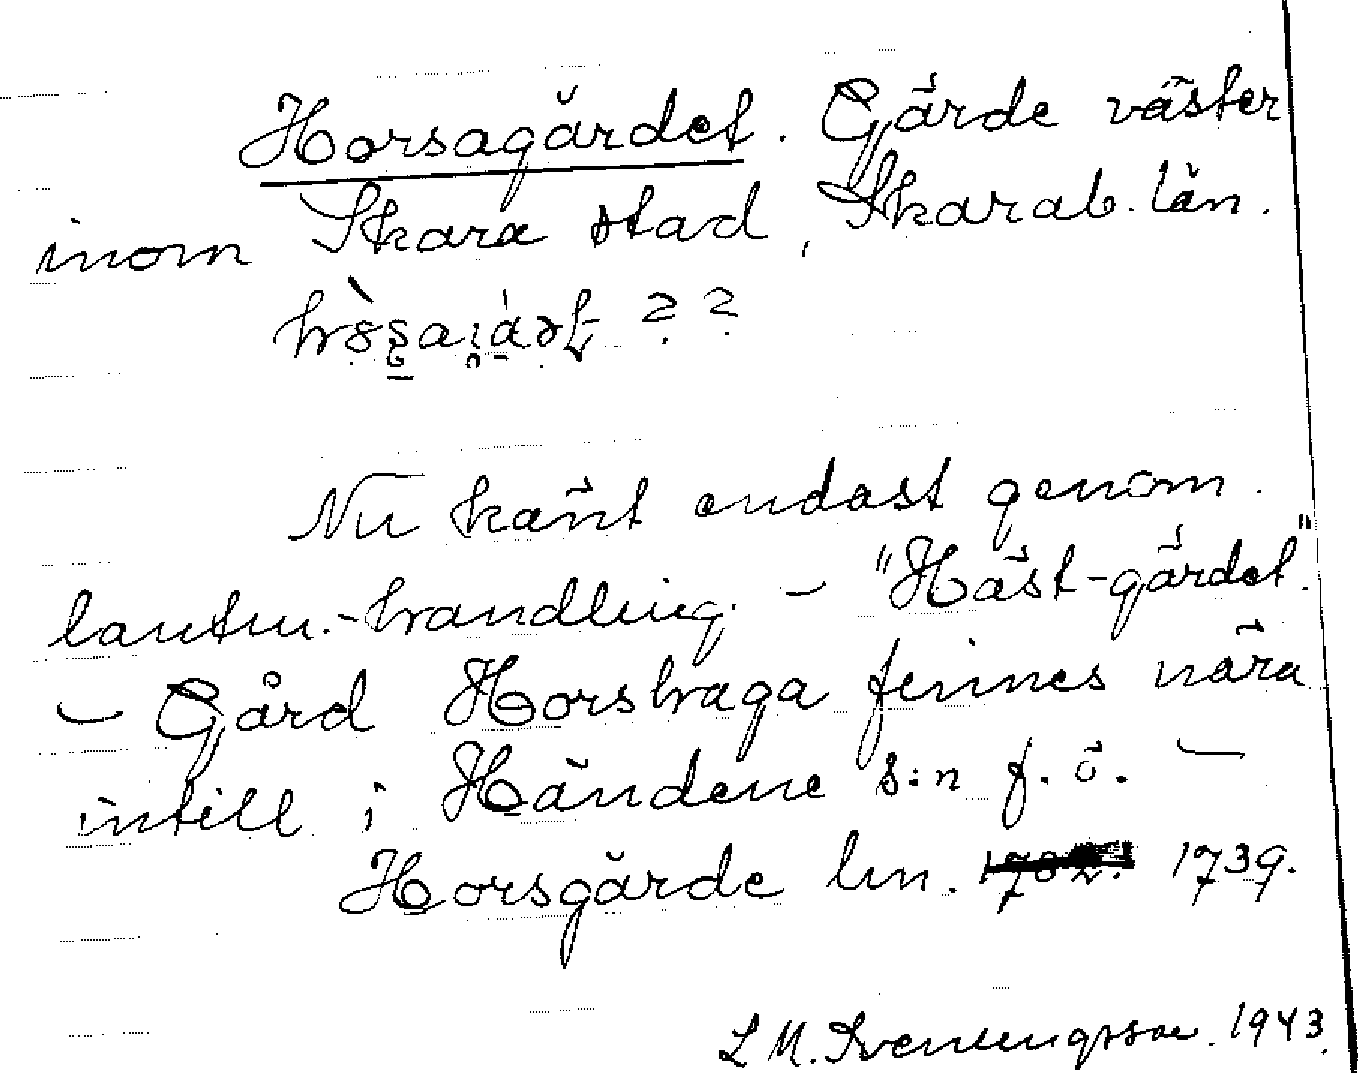 Horsagärdet. Gärde väster
inom Skara stad, Skarab. län.
??
Nu känt endast genom
lantm.-handling. - "Häst-gärdet."
- Gård Horshaga finnes nära
intill i Händene s:n f. ö. -
Horsgärde lm. 1739.
L M. Svennungsson. 1943.